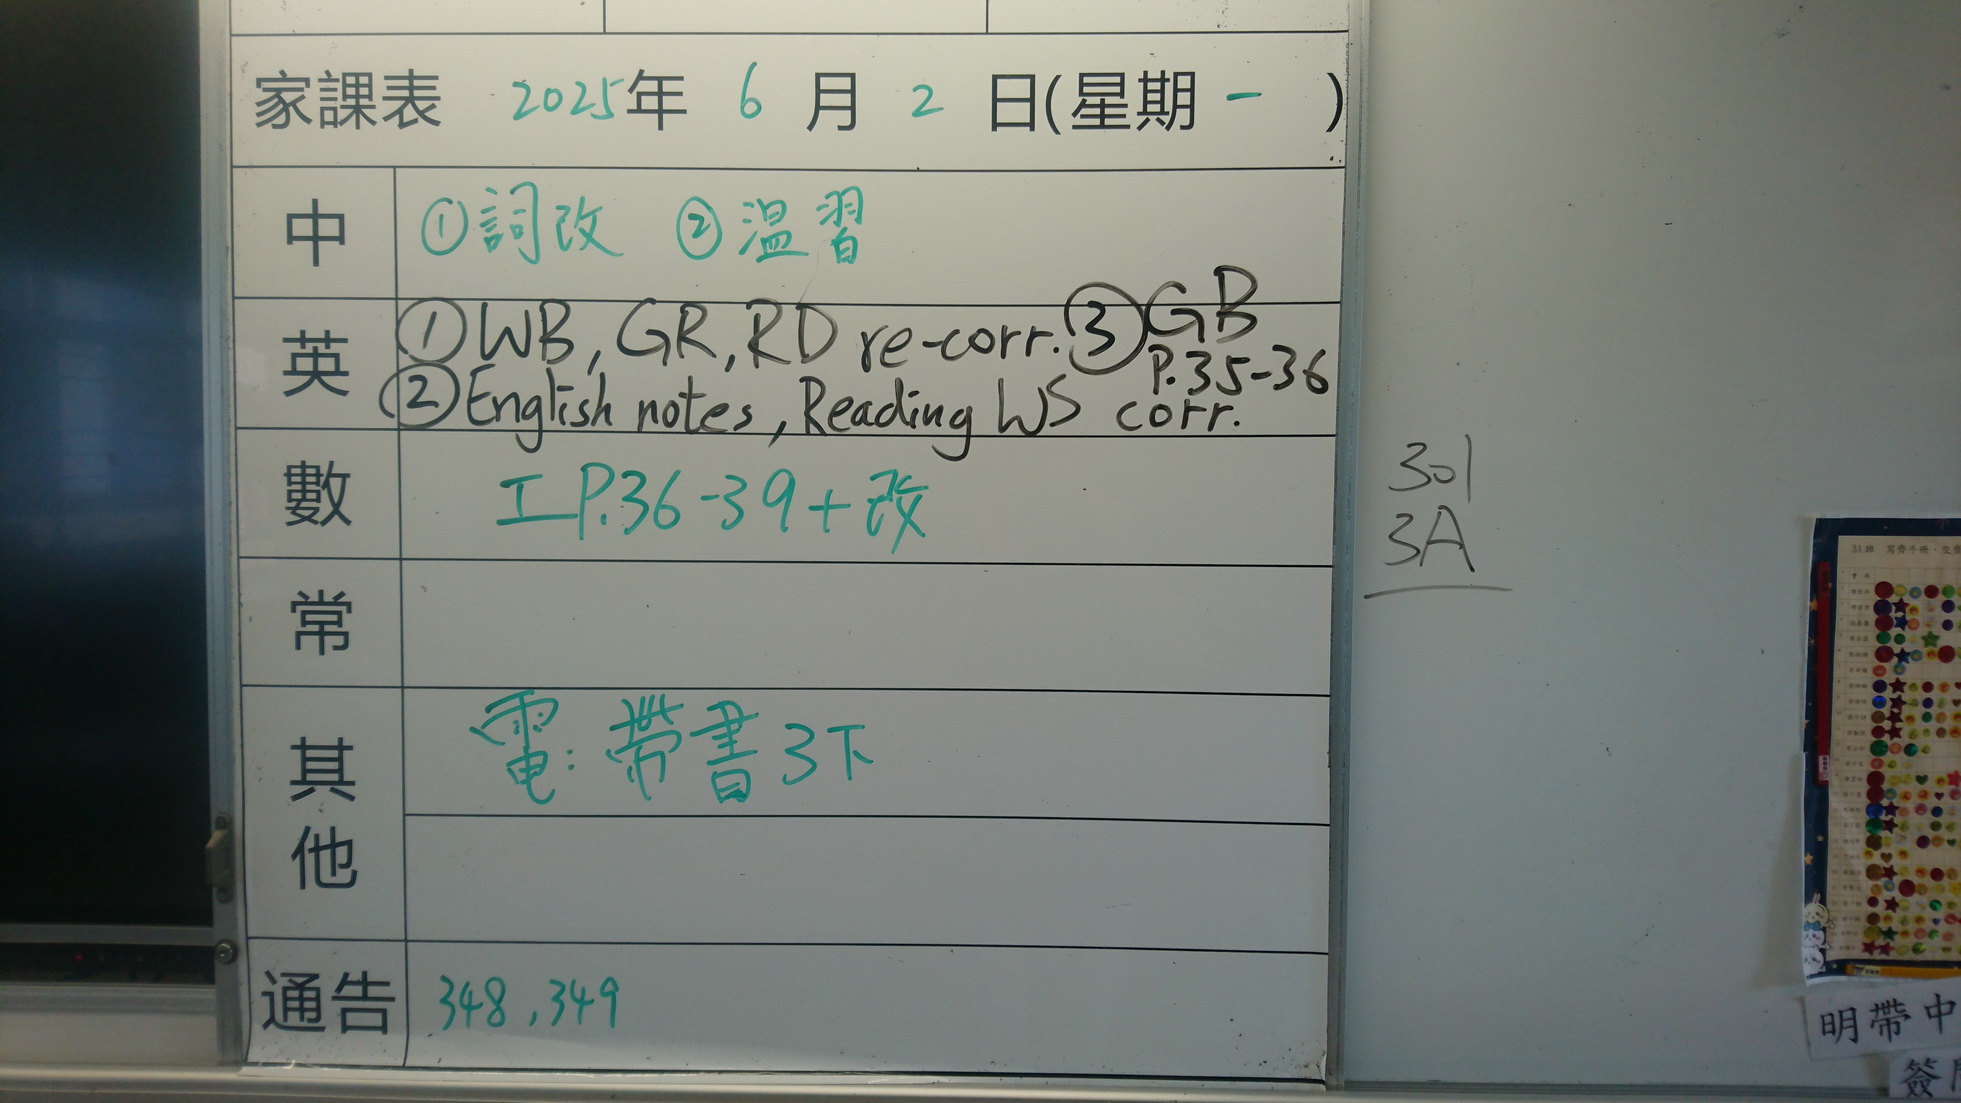 家課表 2025年 6 月 2 日(星期 一 )
中 ①詞改 ②溫習
英 ①WB, GR, RD re-corr. ③GB P.35-36
②English notes, Reading WS corr.
數 工P.36-39+改
常
其他 電: 帶書3下
通告 348, 349
301
3A
明帶中
簽